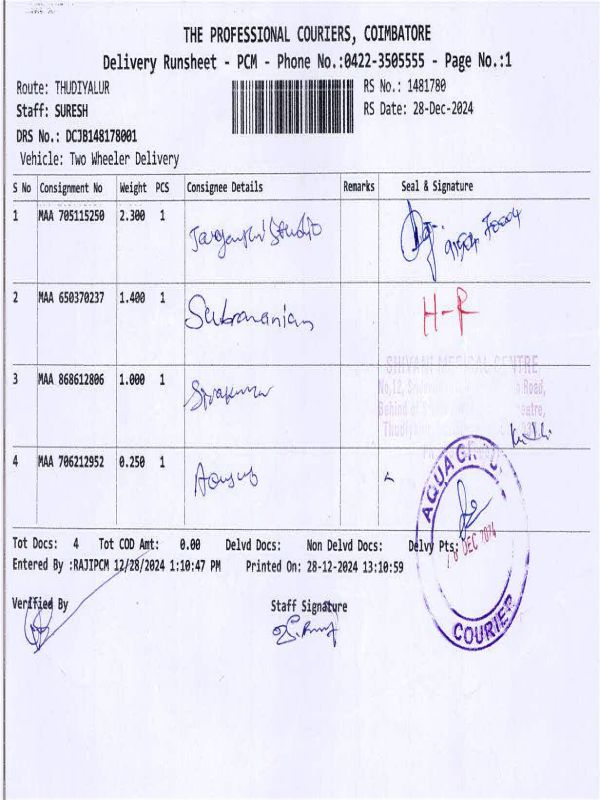 THE PROFESSIONAL COURIERS, COIMBATORE
Delivery Runsheet - PCM - Phone No.:0422-3505555 - Page No.:1
Route: THUDIYALUR
RS No.: 1481780
Staff: SURESH
RS Date: 28-Dec-2024
DRS No.: DCJB148178001
Vehicle: Two Wheeler Delivery
S No Consignment No Weight PCS Consignee Details Remarks Seal & Signature
1 MAA 705115250 2.300 1
2 MAA 650370237 1.400 1 Subramanian H-R
SHIVANI MEDICAL CENTRE
3 MAA 868612806 1.000 1 Sivakumar
4 MAA 706212952 0.250 1
AQUA
DEC
COURIER
Tot Docs: 4 Tot COD Amt: 0.00 Delvd Docs: Non Delvd Docs: Delvy Pts:
Entered By :RAJIPCM 12/28/2024 1:10:47 PM Printed On: 28-12-2024 13:10:59
Verified By Staff Signature